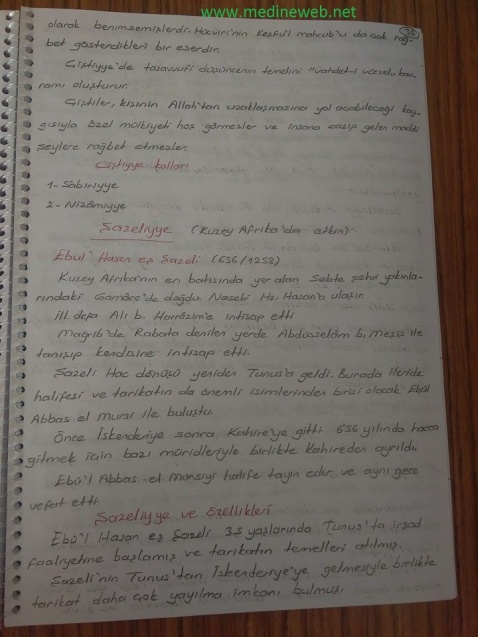 www.medineweb.net
35
olarak benimsemişlerdir. Hücviri'nin Keşfu'l mahcub'u da çok rağ-
bet gösterdikleri bir eserdir.
Çiştiyye'de tasavvufi düşüncenin temelini "vahdet-i vücud" kav-
ramı oluşturur.
Çiştiler, kişinin Allah'tan uzaklaşmasına yol açabileceği kay-
gısıyla özel mülkiyeti hoş görmezler ve insana cazip gelen maddi
şeylere rağbet etmezler.
Çiştiyye kolları
1- Sâbiriyye
2- Nizâmiyye
Şazeliyye (Kuzey Afrika'da etkin)
Ebul' Hasen eş Şazeli (656/1258)
Kuzey Afrika'nın en batısında yer alan Sebte şehri yakınla-
rındaki Gamâre'de doğdu. Nesebi Hz. Hasan'a ulaşır.
İlk defa Ali b. Harrâzım'e intisap etti
Mağrib'de Rabata denilen yerde Abdüsselâm b. Meşiş ile
tanışıp kendisine intisap etti.
Şazeli Hac dönüşü yeniden Tunus'a geldi. Burada ileride
halifesi ve tarikatın da önemli isimlerinden birisi olacak Ebül
Abbas el Mursi ile buluştu.
Önce İskenderiye sonra Kahire'ye gitti. 656 yılında hacca
gitmek için bazı müridleriyle birlikte Kahireden ayrıldı
Ebü'l Abbas el mursiyi halife tayin eder ve aynı gece
vefat etti.
Şazeliyye ve özellikleri
Ebü'l Hasan eş Şazeli 35 yaşlarında Tunus'ta irşad
faaliyetine başlamış ve tarikatın temelleri atılmış.
Şazeli'nin Tunus'tan İskenderiye'ye gelmesiyle birlikte
tarikat daha çok yayılma imkanı bulmuş